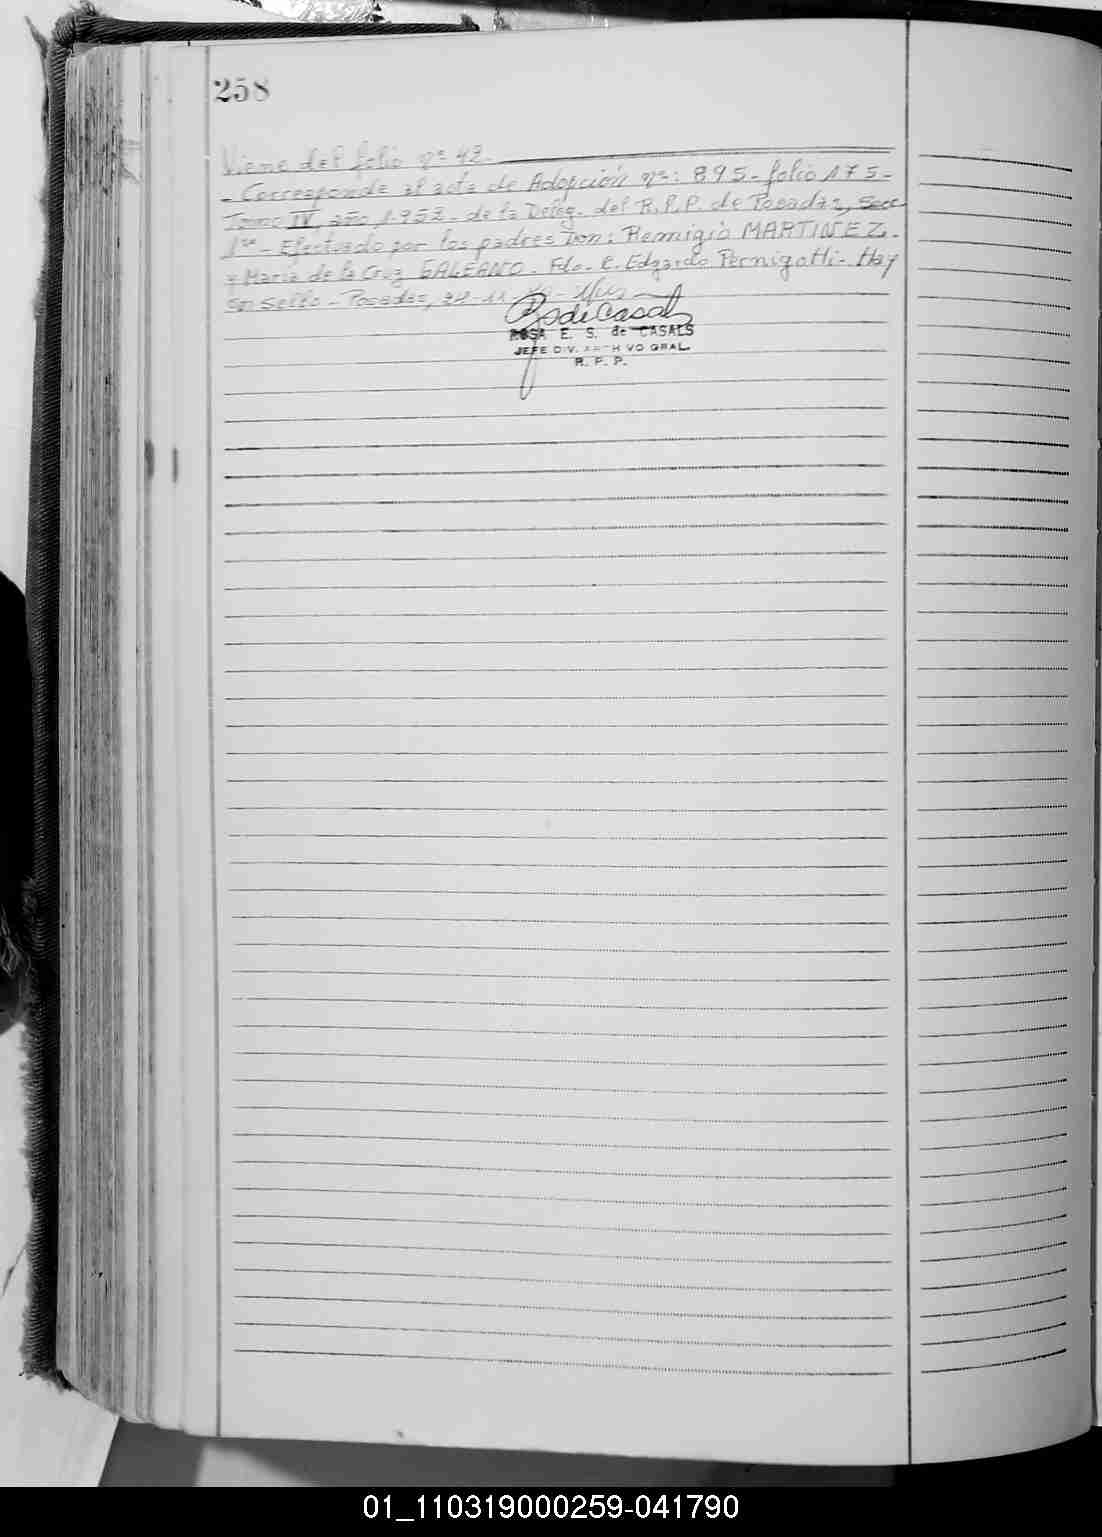 258
Viene del folio nº 42.
- Corresponde al acta de Adopción nº: 895 - folio 175 -
Tomo IV, año 1.952 - de la Deleg. del R.P.P. de Posadas, Secc.
1ra - Efectuado por los padres Don: Remigio MARTINEZ.
y María de la Cruz GALEANO. Fdo. E. Edgardo Pernigotti - Hay
un sello - Posadas,
ROSA E. S. de CASALS
JEFE DIV. ARCHIVO GRAL.
R. P. P.
01_110319000259-041790